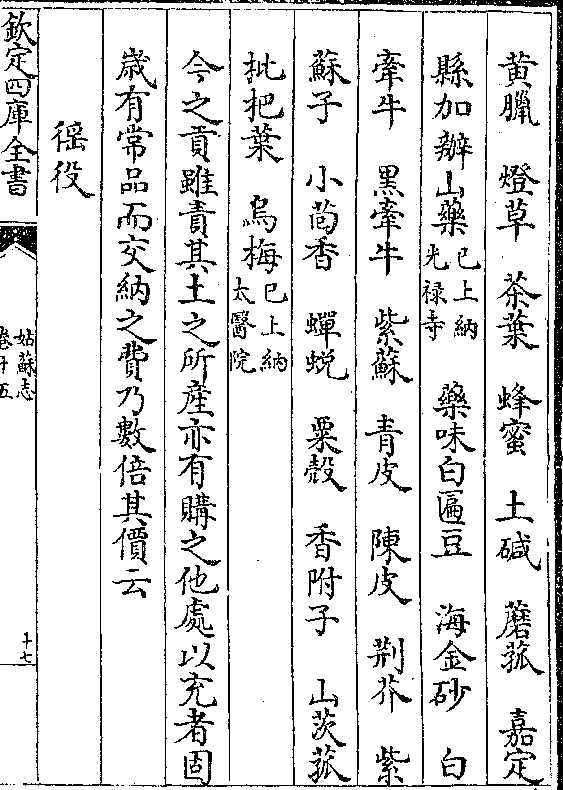 黄臘　燈草　茶葉　蜂蜜　土碱　蘑菰　嘉定
縣加辦山藥已上納光禄寺　藥味白匾豆　海金砂　白
牽牛　黒牽牛　紫蘇　青皮　陳皮　荆芥　紫
蘇子　小茴香　蟬蜕　粟殻　香附子　山茨菰
枇把葉　烏梅已上納太醫院
今之貢雖責其土之所産亦有購之他處以充者固
嵗有常品而交納之費乃數倍其價云
徭役
欽定四庫全書
姑蘇志
卷十五
十七